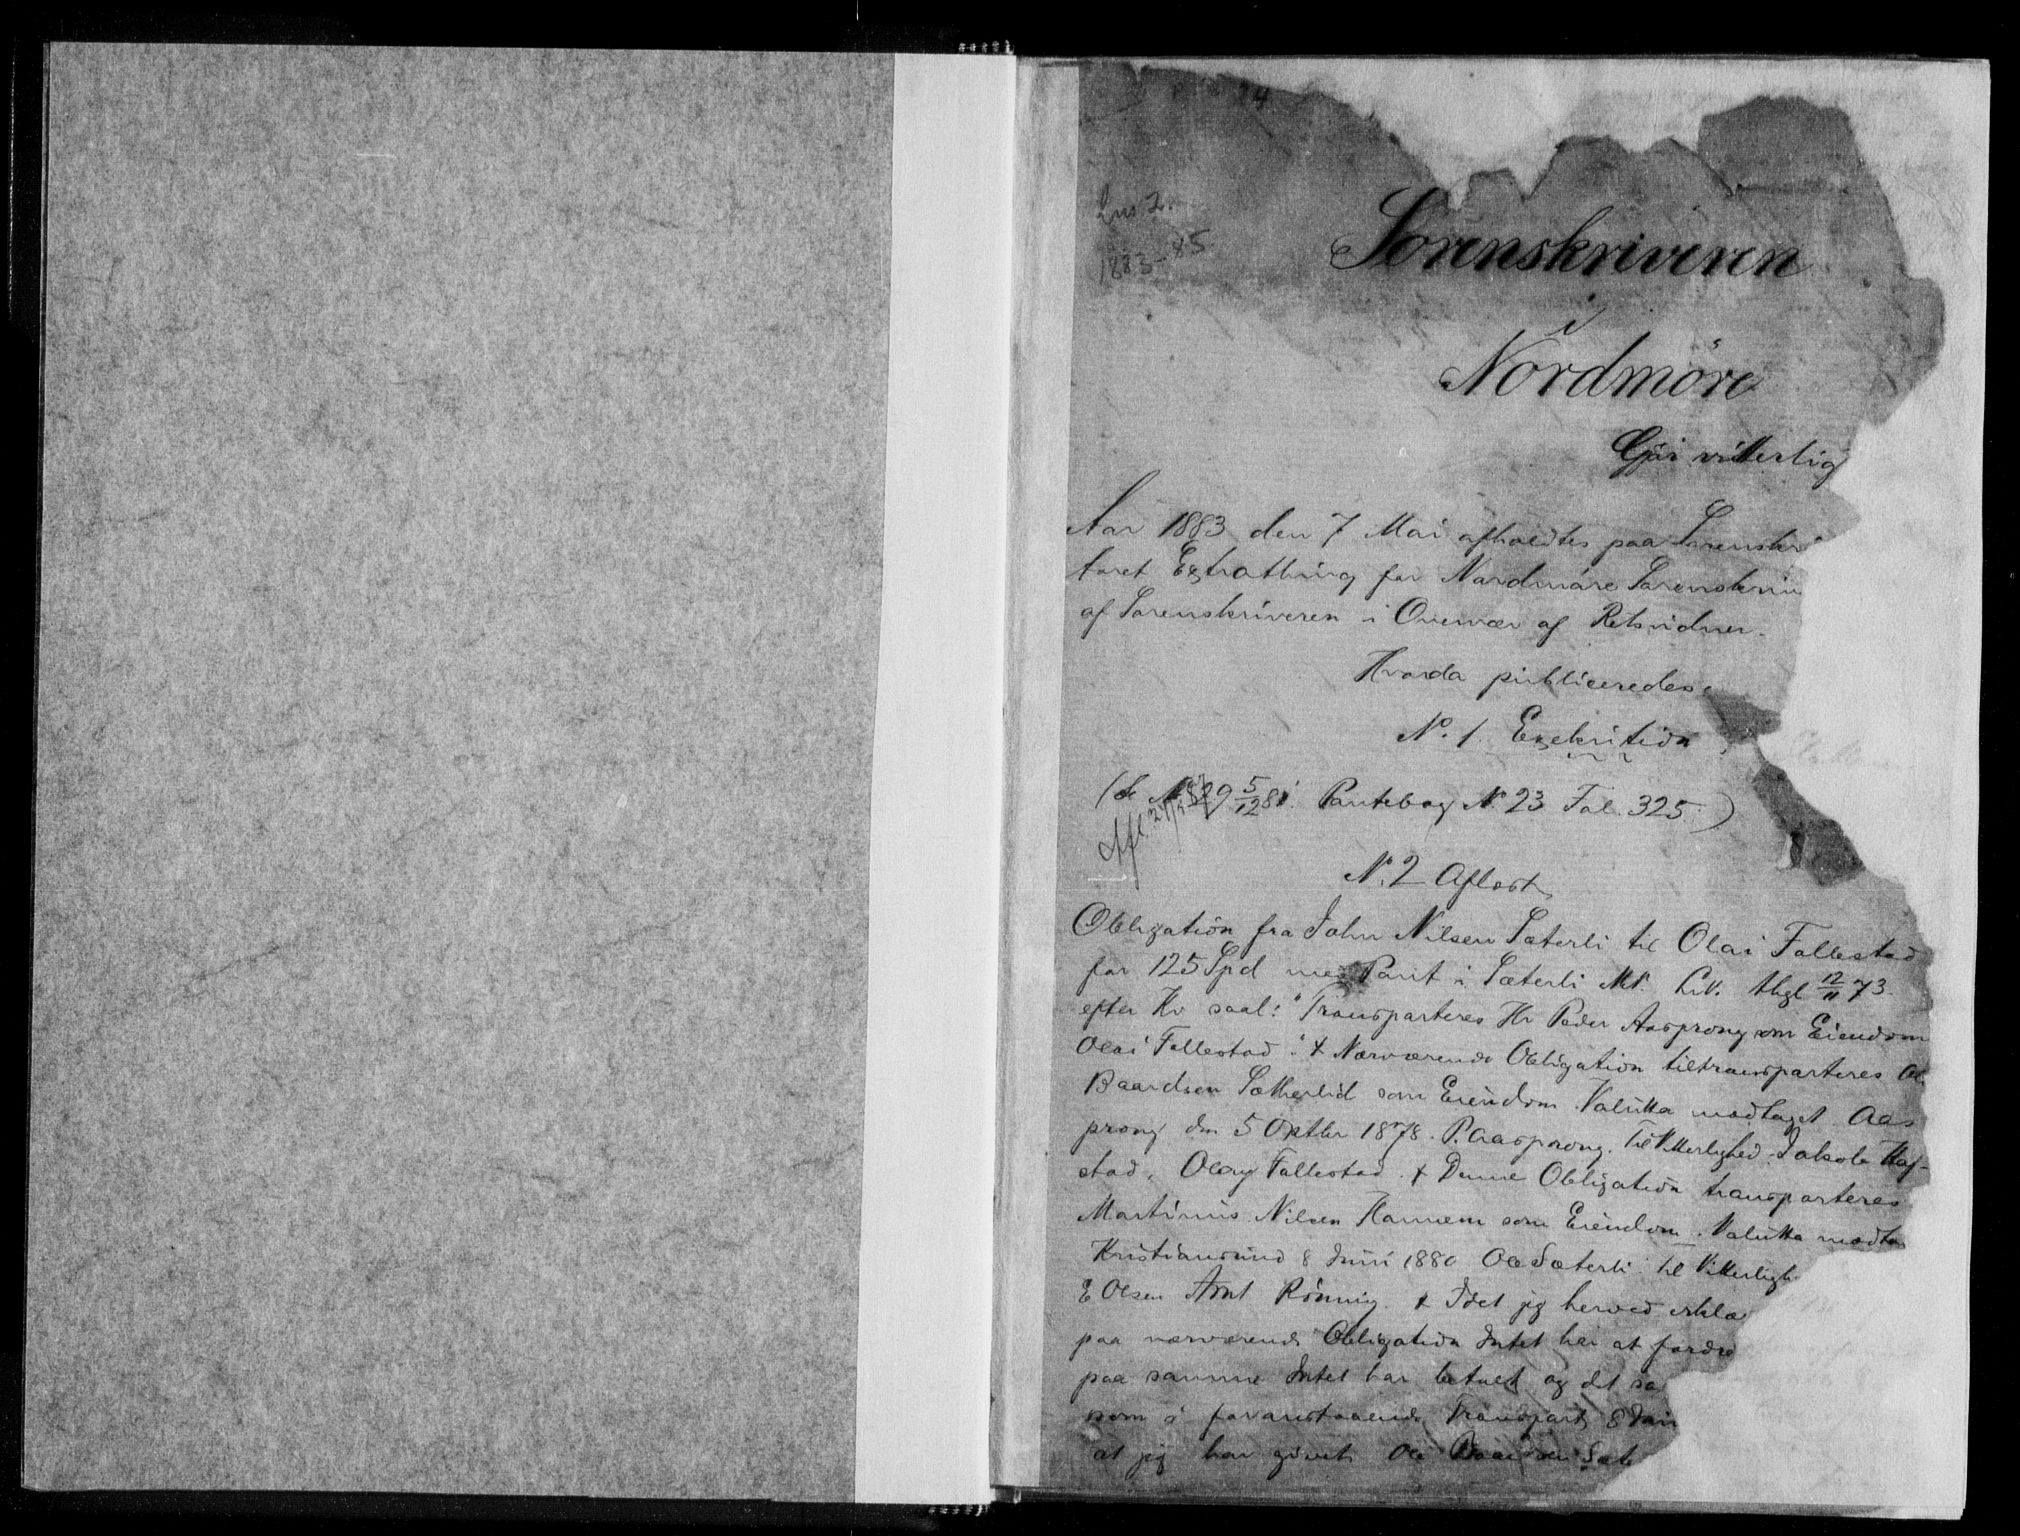 1883-85
Sorenskriveren
i
Nordmöre
Gjör vitterlig
Aar 1883 den 7 Mai afholdtes paa Sorenskr
toret Extrathing for Nordmöre Sorenskriv
af Sorenskriveren i Overvær af Retsvidner.
Hvorda publiceredes:
No. 1. Exekution
(Se No. 29 5/12 81. Pantebog No. 23 Fol. 325.)
No. 2 Aflæst
Obligation fra John Nilsen Sæterli til Olai Follestad
for 125 Spd med Pant i Sæterli Mt. thgl 12/11 73
efter Kv saal: "Transporteres Hr Peder Aasprong som Eiendom
Olai Follestad." + Nærværende Obligation tiltransporteres Ol
Baardsen Sætherlid som Eiendom. Valutta modtaget. Aas
prong den 5 Oktbr 1878. P. Aasprong. Til Vitterlighed: Jakob
stad, Olay Follestad. + Denne Obligation transporteres
Martinus Nilsen Hannem som Eiendom. Valutta modta
Kristiansund 8 Juni 1880 Ole Sæterli til Vitterligh
E Olsen Arnt Rönnig. + Idet jeg herved erklæ
paa nærværende Obligation Intet har at fordre
paa samme Intet har betalt og det sa
som i foranstaaende Transport 8 Jun
at jeg har givet Ole Baardsen Sæte